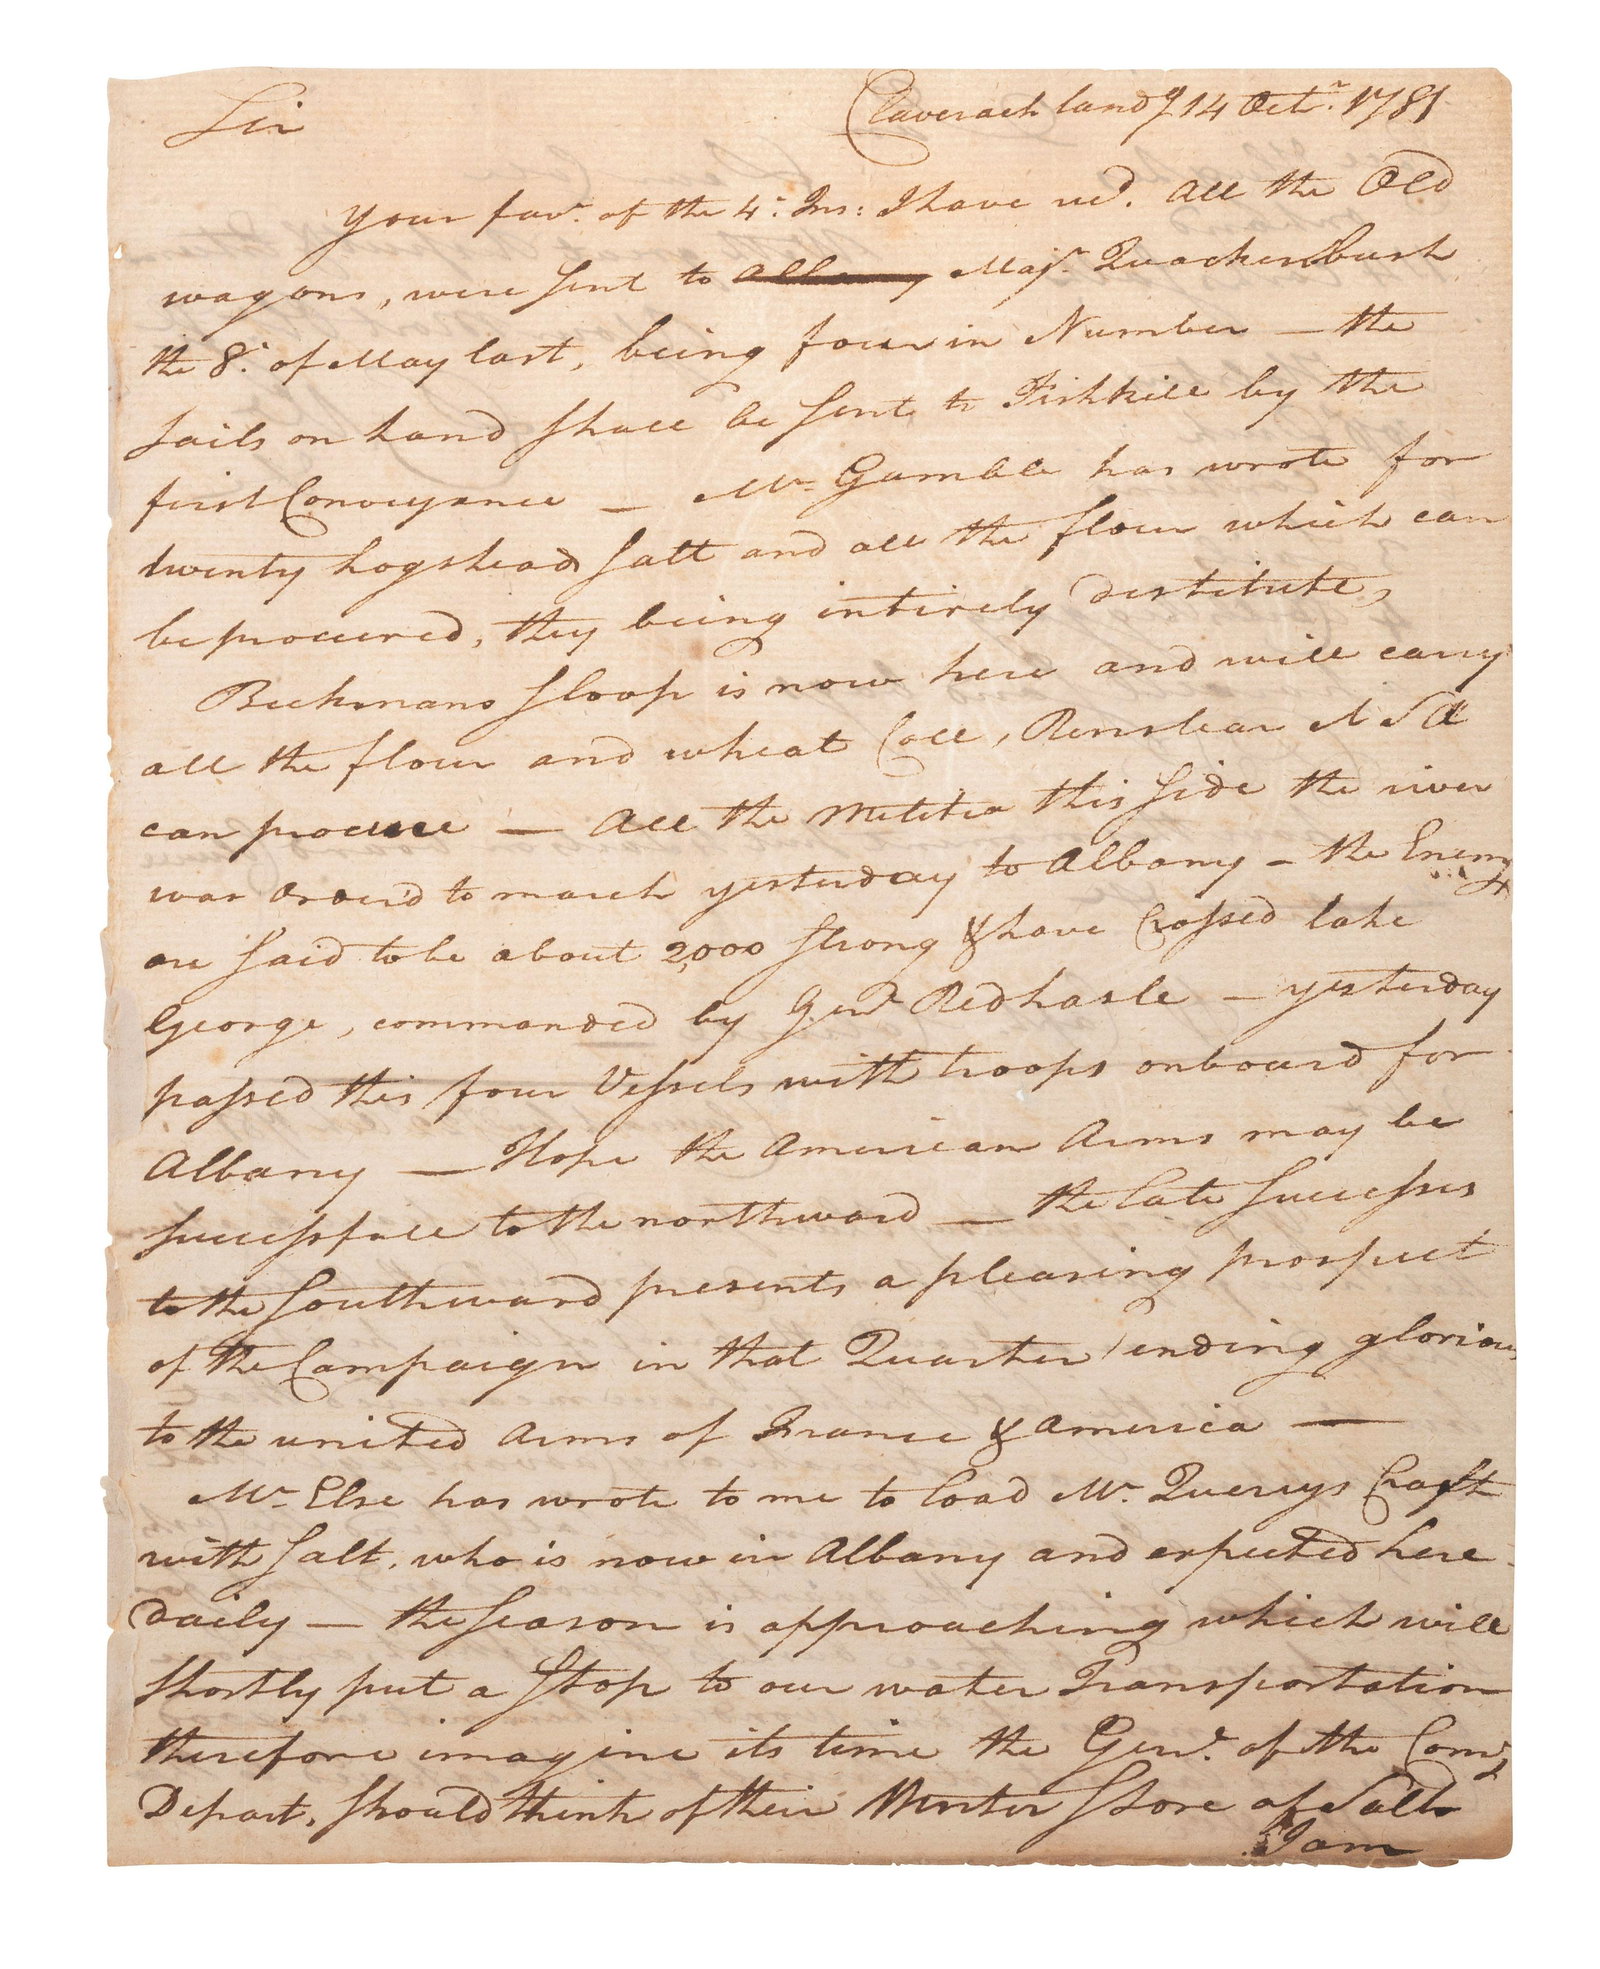 Sir
Claverack landg 14 Octr. 1781
Your favr. of the 4: Ins: I have recd. All the Old
wagons, were sent to Albany Majr. Quackenbush
the 8: of May last, being four in Number — the
sails on hand shall be sent to Fishkill by the
first Conveyance — Mr. Gamble has wrote for
twenty hogshead salt and all the flour which can
be procured, they being intirely destitute,
Beekmans sloop is now here and will carry
all the flour and wheat Coll, Renslear
can procure — All the Militia this side the river
was Order'd to march yesterday to Albany – the Enemy
are said to be about 2,000 strong & have Crossed lake
George, commanded by Genl. Redhasle — yesterday
passed this four Vessels with troops onboard for
Albany — Hope the American Arms may be
successfull to the northward — the late successes
to the Southward presents a pleasing prospect
of the Campaign in that Quarter ending glorious
to the united Arms of France & America —
Mr. Else has wrote to me to load Mr.Quereys Craft
with salt, who is now in Albany and expected here
daily — the season is approaching which will
shortly put a stop to our water Transportation
therefore imagine its time the Genl. of the Comy
Depart, should think of their Winter Store of Salt
I am